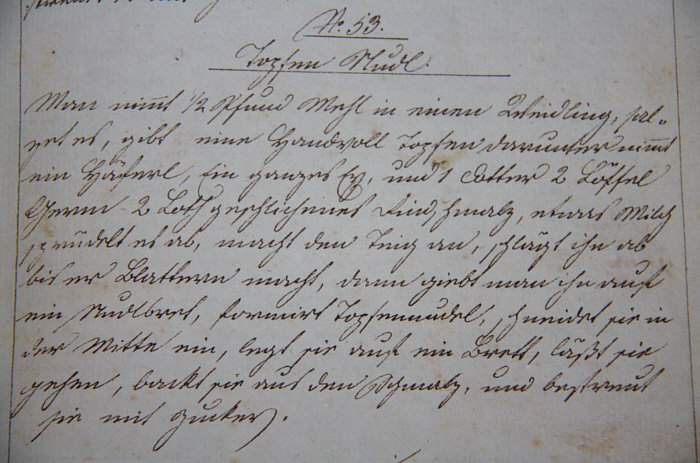 No. 53.
Topfen Nudl.
Man nimmt 1/2 Pfund Mehl in einen Weidling, sal-
zet es, gibt eine Handvoll Topfen darunter nimmt
ein Häferl, Ein ganzes Ey, und 1 Dotter 2 Löffel
Germ 2 Loth geschlichenes Rindschmalz, etwas Milch
sprüdelt es ab, macht den Teig an, schlägt ihn ab
bis er Blattern macht, dann giebt man ihn auf
ein Nudlbret, formirt Topfennudel, schneidet sie in
der Mitte ein, legt sie auf ein Brett, läßt sie
gehen, backt sie aus den Schmalz, und bestreut
sie mit Zucker.